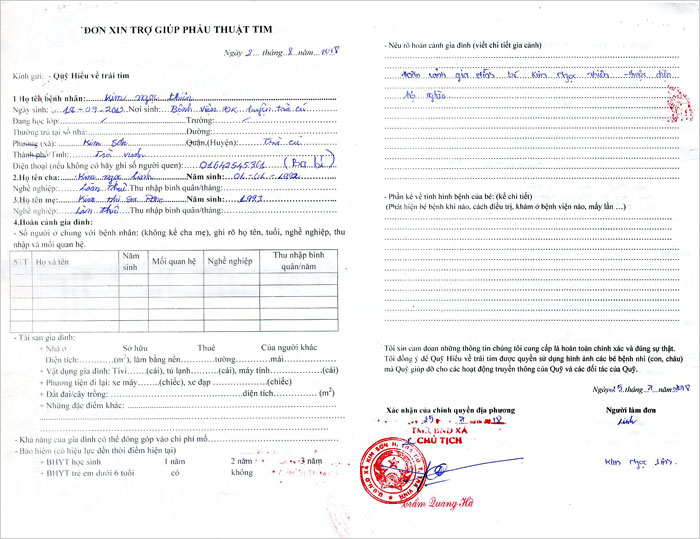 ĐƠN XIN TRỢ GIÚP PHẪU THUẬT TIM
Ngày 2 tháng 8 năm 2018
Kính gửi: - Quỹ Hiểu về trái tim
1 Họ tên bệnh nhân: Kim Ngọc Thiên
Ngày sinh: 12-09-2012 Nơi sinh: Bệnh viện ĐK huyện trà cú
Đang học lớp: / Trường: /
Thường trú tại số nhà: Đường:
Phường (xã): Kim Sơn Quận,(Huyện): Trà cú
Thành phố/Tỉnh: Trà vinh
Điện thoại (nếu không có hãy ghi số người quen): 01642545361 (Ba bé)
2.Họ tên cha: Kim Ngọc Linh Năm sinh: 01-01-1992
Nghề nghiệp: Làm thuê Thu nhập bình quân/tháng:
3.Họ tên mẹ: Kim Thị Sa Năm sinh: 1993
Nghề nghiệp: Làm thuê Thu nhập bình quân/tháng:
4.Hoàn cảnh gia đình:
- Số người ở chung với bệnh nhân: (không kể cha mẹ), ghi rõ họ tên, tuổi, nghề nghiệp, thu
nhập và mối quan hệ.
STT Họ và tên Năm sinh Mối quan hệ Nghề nghiệp Thu nhập bình quân/năm
- Tài sản gia đình:
+ Nhà ở Sở hữu Thuê Của người khác
Diện tích:............(m²), làm bằng nền...........tường.............mái...............
+ Vật dụng gia đình: Tivi......(cái), tủ lạnh.......(cái), máy tính...........(cái)
+ Phương tiện đi lại: xe máy.......(chiếc), xe đạp ...............(chiếc)
+ Đất đai/cây trồng: ...............................diện tích ............... (m²)
+ Những đặc điểm khác: ...............................
- Khả năng của gia đình có thể đóng góp vào chi phí mổ...............
- Bảo hiểm (có hiệu lực đến thời điểm hiện tại)
+ BHYT học sinh 1 năm 2 năm 3 năm
+ BHYT trẻ em dưới 6 tuổi có không
- Nêu rõ hoàn cảnh gia đình (viết chi tiết gia cảnh)
hoàn cảnh gia đình bé Kim Ngọc Thiên thuộc diện
hộ nghèo
- Phần kể về tình hình bệnh của bé: (kể chi tiết)
(Phát hiện bé bệnh khi nào, cách điều trị, khám ở bệnh viện nào, mấy lần …)
Tôi xin cam đoan những thông tin chúng tôi cung cấp là hoàn toàn chính xác và đúng sự thật.
Tôi đồng ý để Quỹ Hiểu về trái tim được quyền sử dụng hình ảnh các bé bệnh nhi (con, cháu)
mà Quỹ giúp đỡ cho các hoạt động truyền thông của Quỹ và các đối tác của Quỹ.
Ngày 25 tháng 7 năm 2018
Xác nhận của chính quyền địa phương Người làm đơn
25 7 18 Linh
TM. UBND XÃ
CHỦ TỊCH
U.B.N.D XÃ KIM SƠN H. TRÀ CÚ T. TRÀ VINH
Kim Ngọc Linh
Trầm Quang Hà